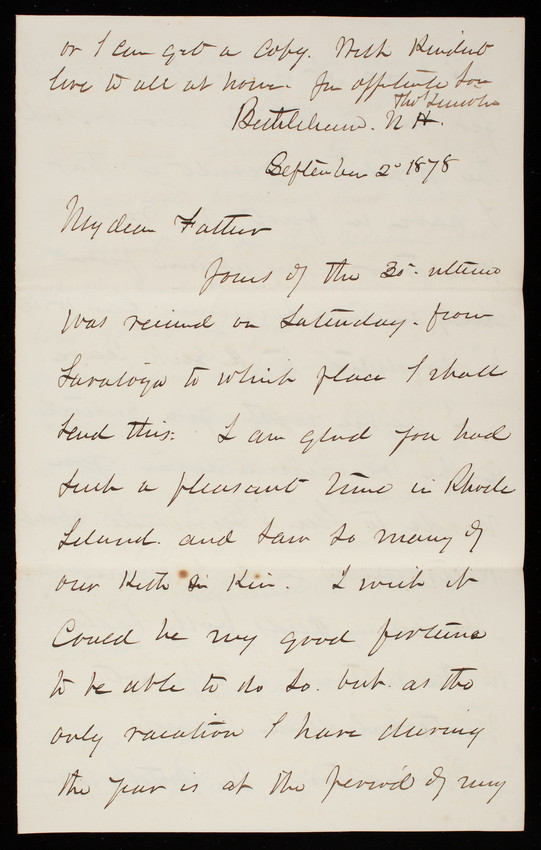 or I can get a Copy. With Kindest
love to all at home. Yr affectionate Son
Thos Lincoln
Bethlehem. N H.
September 2d 1878
My dear Father
Yours of the 30- ultimo
was received on Saturday. from
Saratoga to which place I shall
send this. I am glad you had
such a pleasant time in Rhode
Island. and saw so many of
our Kith & Kin. I wish it
Could be my good fortune
to be able to do so. but as the
only vacation I have during
the year is at the period of my